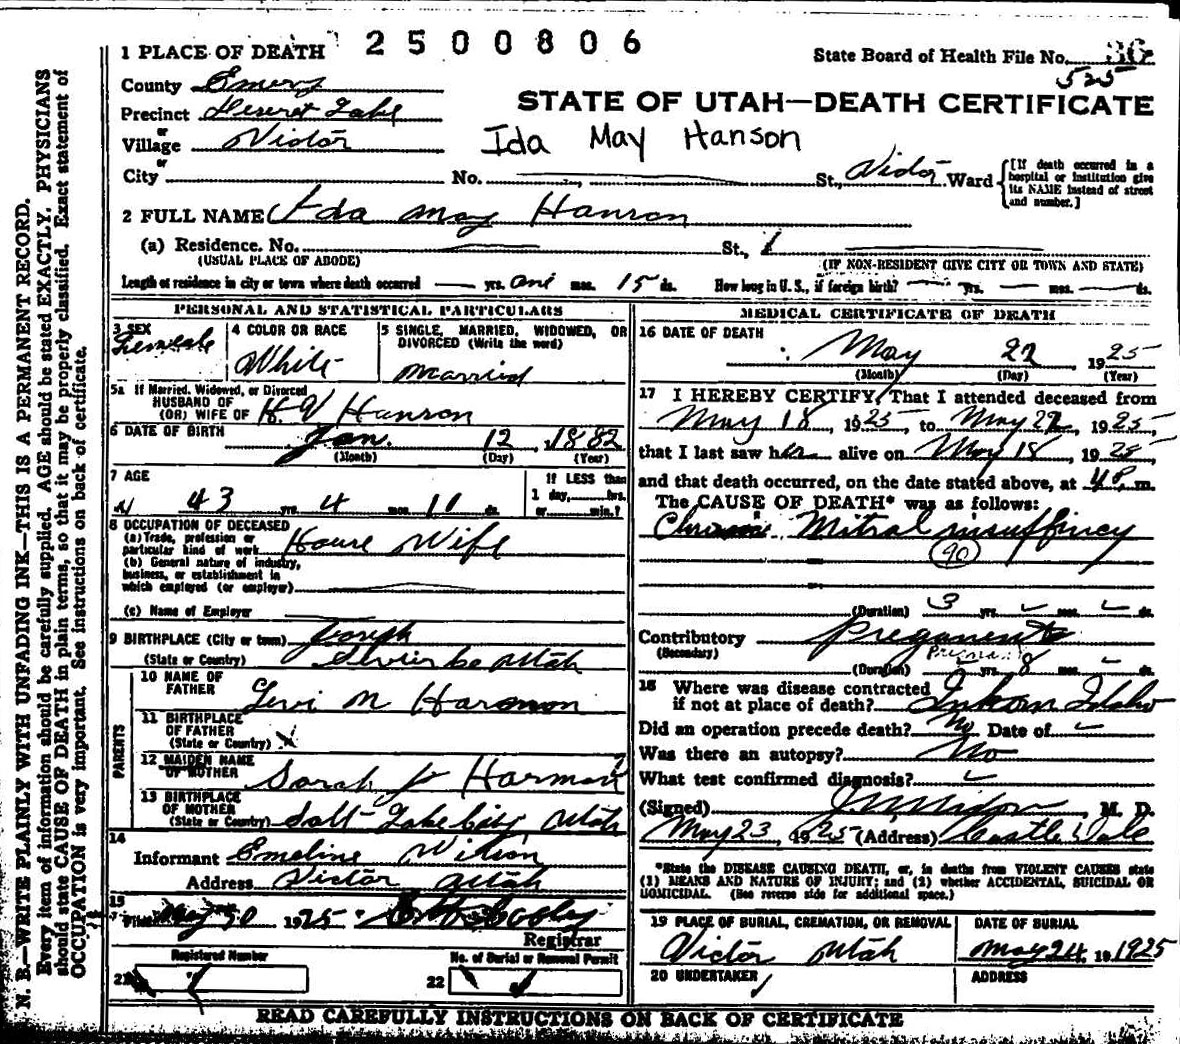 2500806
1 PLACE OF DEATH
State Board of Health File No. 36
525
County Emery
STATE OF UTAH—DEATH CERTIFICATE
Precinct Desert Lake
or
Village Victor
Ida May Hanson
or
City No. St., Victor Ward
[If death occurred in a hospital or institution give its NAME instead of street and number.]
2 FULL NAME Ida May Hanson
(a) Residence. No. St.,
(USUAL PLACE OF ABODE) (IF NON-RESIDENT GIVE CITY OR TOWN AND STATE)
Length of residence in city or town where death occurred yrs. one mos. 15 ds. How long in U. S., if foreign birth? yrs. mos. ds.
PERSONAL AND STATISTICAL PARTICULARS
3 SEX
Female
4 COLOR OR RACE
White
5 SINGLE, MARRIED, WIDOWED, OR
DIVORCED (Write the word)
Married
5a If Married, Widowed, or Divorced
HUSBAND OF
(OR) WIFE OF H. V Hanson
6 DATE OF BIRTH Jan. 12, 1882
(Month) (Day) (Year)
7 AGE
43 yrs. 4 mos. 10 ds.
If LESS than
1 day, hrs.
or min.?
8 OCCUPATION OF DECEASED
(a) Trade, profession or
particular kind of work House Wife
(b) General nature of industry,
business, or establishment in
which employed (or employer)
(c) Name of Employer
9 BIRTHPLACE (City or town) Joseph
(State or Country) Sevier Co Utah
PARENTS
10 NAME OF
FATHER Levi M Harmon
11 BIRTHPLACE
OF FATHER
(State or Country)
12 MAIDEN NAME
OF MOTHER Sarah J Harman ?
13 BIRTHPLACE
OF MOTHER
(State or Country) Salt Lake City, Utah
14
Informant Emeline Wilson
Address Victor Utah
15
Filed May 30 1925
Registrar
Registered Number
No. of Burial or Removal Permit
21
22
MEDICAL CERTIFICATE OF DEATH
16 DATE OF DEATH
May 22, 1925
(Month) (Day) (Year)
17 I HEREBY CERTIFY, That I attended deceased from
May 18, 1925, to May 22, 1925,
that I last saw her alive on May 18, 1925,
and that death occurred, on the date stated above, at 4 P. m.
The CAUSE OF DEATH* was as follows:
Chronic Mitral insuffincy
90
(Duration) 3 yrs. mos. ds.
Contributory
(Secondary)
(Duration) yrs. 8 mos. ds.
18 Where was disease contracted
if not at place of death? Inkom Idaho
Did an operation precede death? No Date of
Was there an autopsy? No
What test confirmed diagnosis?
(Signed) M. D.
May 23, 1925 (Address) Castle Dale
*State the DISEASE CAUSING DEATH, or, in deaths from VIOLENT CAUSES state
(1) MEANS AND NATURE OF INJURY; and (2) whether ACCIDENTAL, SUICIDAL OR
HOMICIDAL. (See reverse side for additional space.)
19 PLACE OF BURIAL, CREMATION, OR REMOVAL
Victor Utah
DATE OF BURIAL
May 24, 1925
20 UNDERTAKER
ADDRESS
READ CAREFULLY INSTRUCTIONS ON BACK OF CERTIFICATE
N. B.—WRITE PLAINLY WITH UNFADING INK—THIS IS A PERMANENT RECORD.
Every item of information should be carefully supplied. AGE should be stated EXACTLY. PHYSICIANS
should state CAUSE OF DEATH in plain terms, so that it may be properly classified. Exact statement of
OCCUPATION is very important. See instructions on back of certificate.